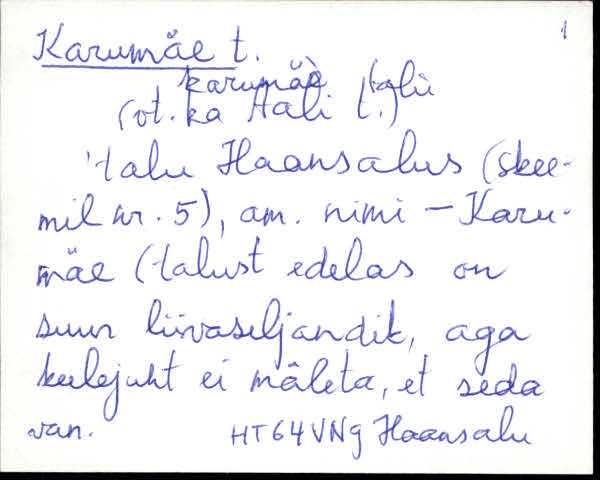 1
Karumäe t.
karumäè talù
(vt. ka Aali t.)
'talu Haansalus (skee-
mil nr. 5), am. nimi – Karu-
mäe (talust edelas on
suur liivaseljandik, aga
keelejuht ei mäleta, et seda
van. HT64VNg Haansalu